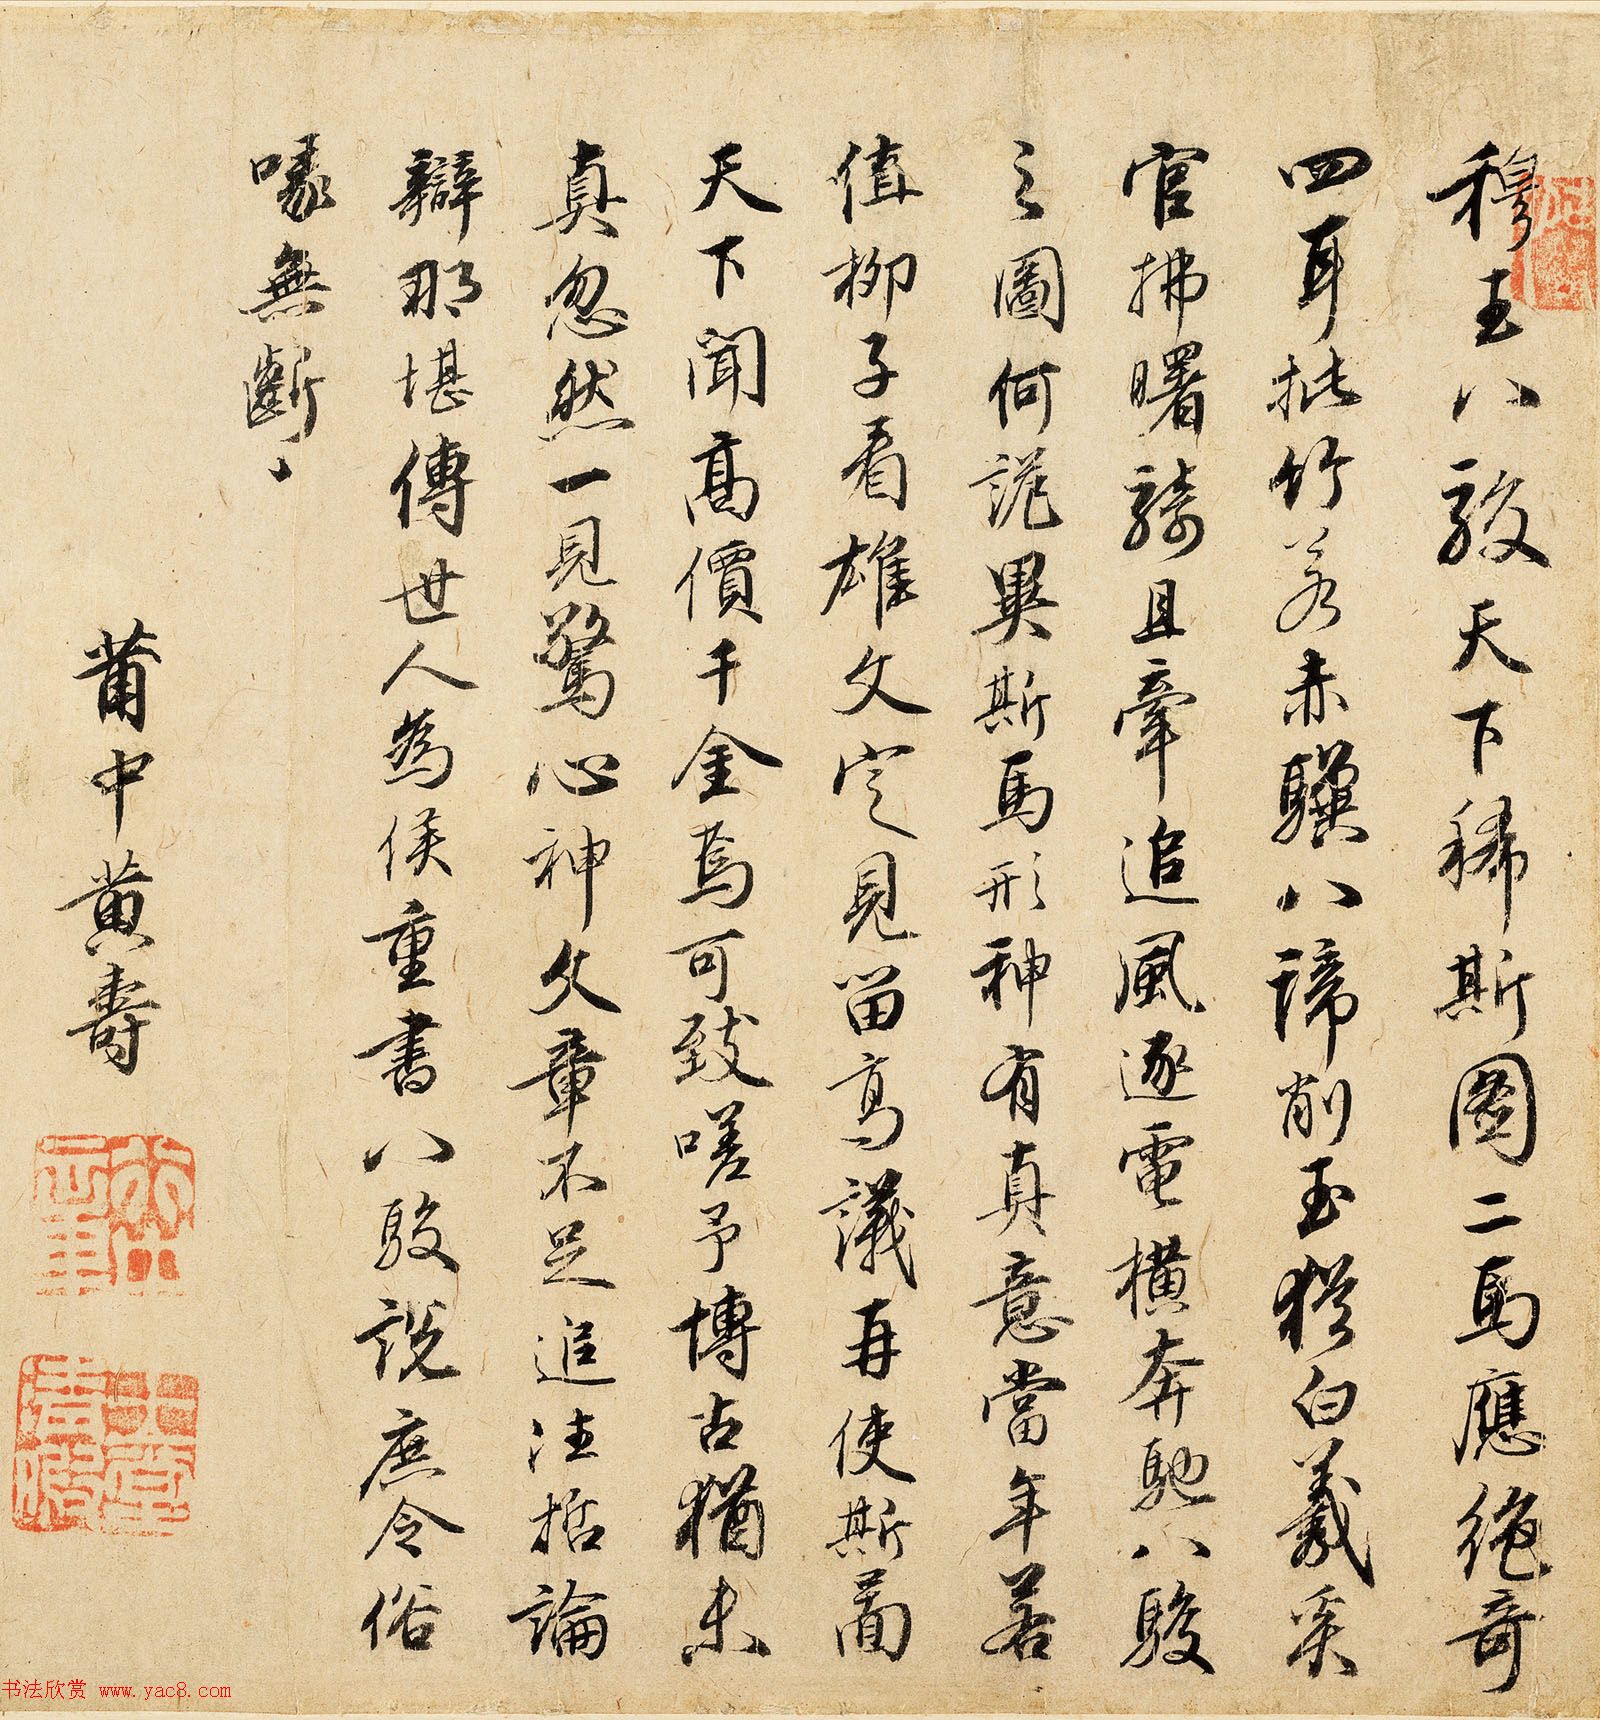 穆王八駿天下稀斯圖二馬應絶奇
四耳批竹若赤驥八蹄削玉猶白義奚
官拂曙騎且牽追風逐電橫奔馳八駿
之圖何詭異斯馬形神有真意當年若
值柳子看雄文定見留高議再使斯啚
天下聞高價千金焉可致嗟予博古猶未
真忽然一見驚心神文章不足追注括論
辯那堪傳世人為侯重書八駿說庶令俗
喙無斷〻
莆中黄壽
书法欣赏 www.yac8.com